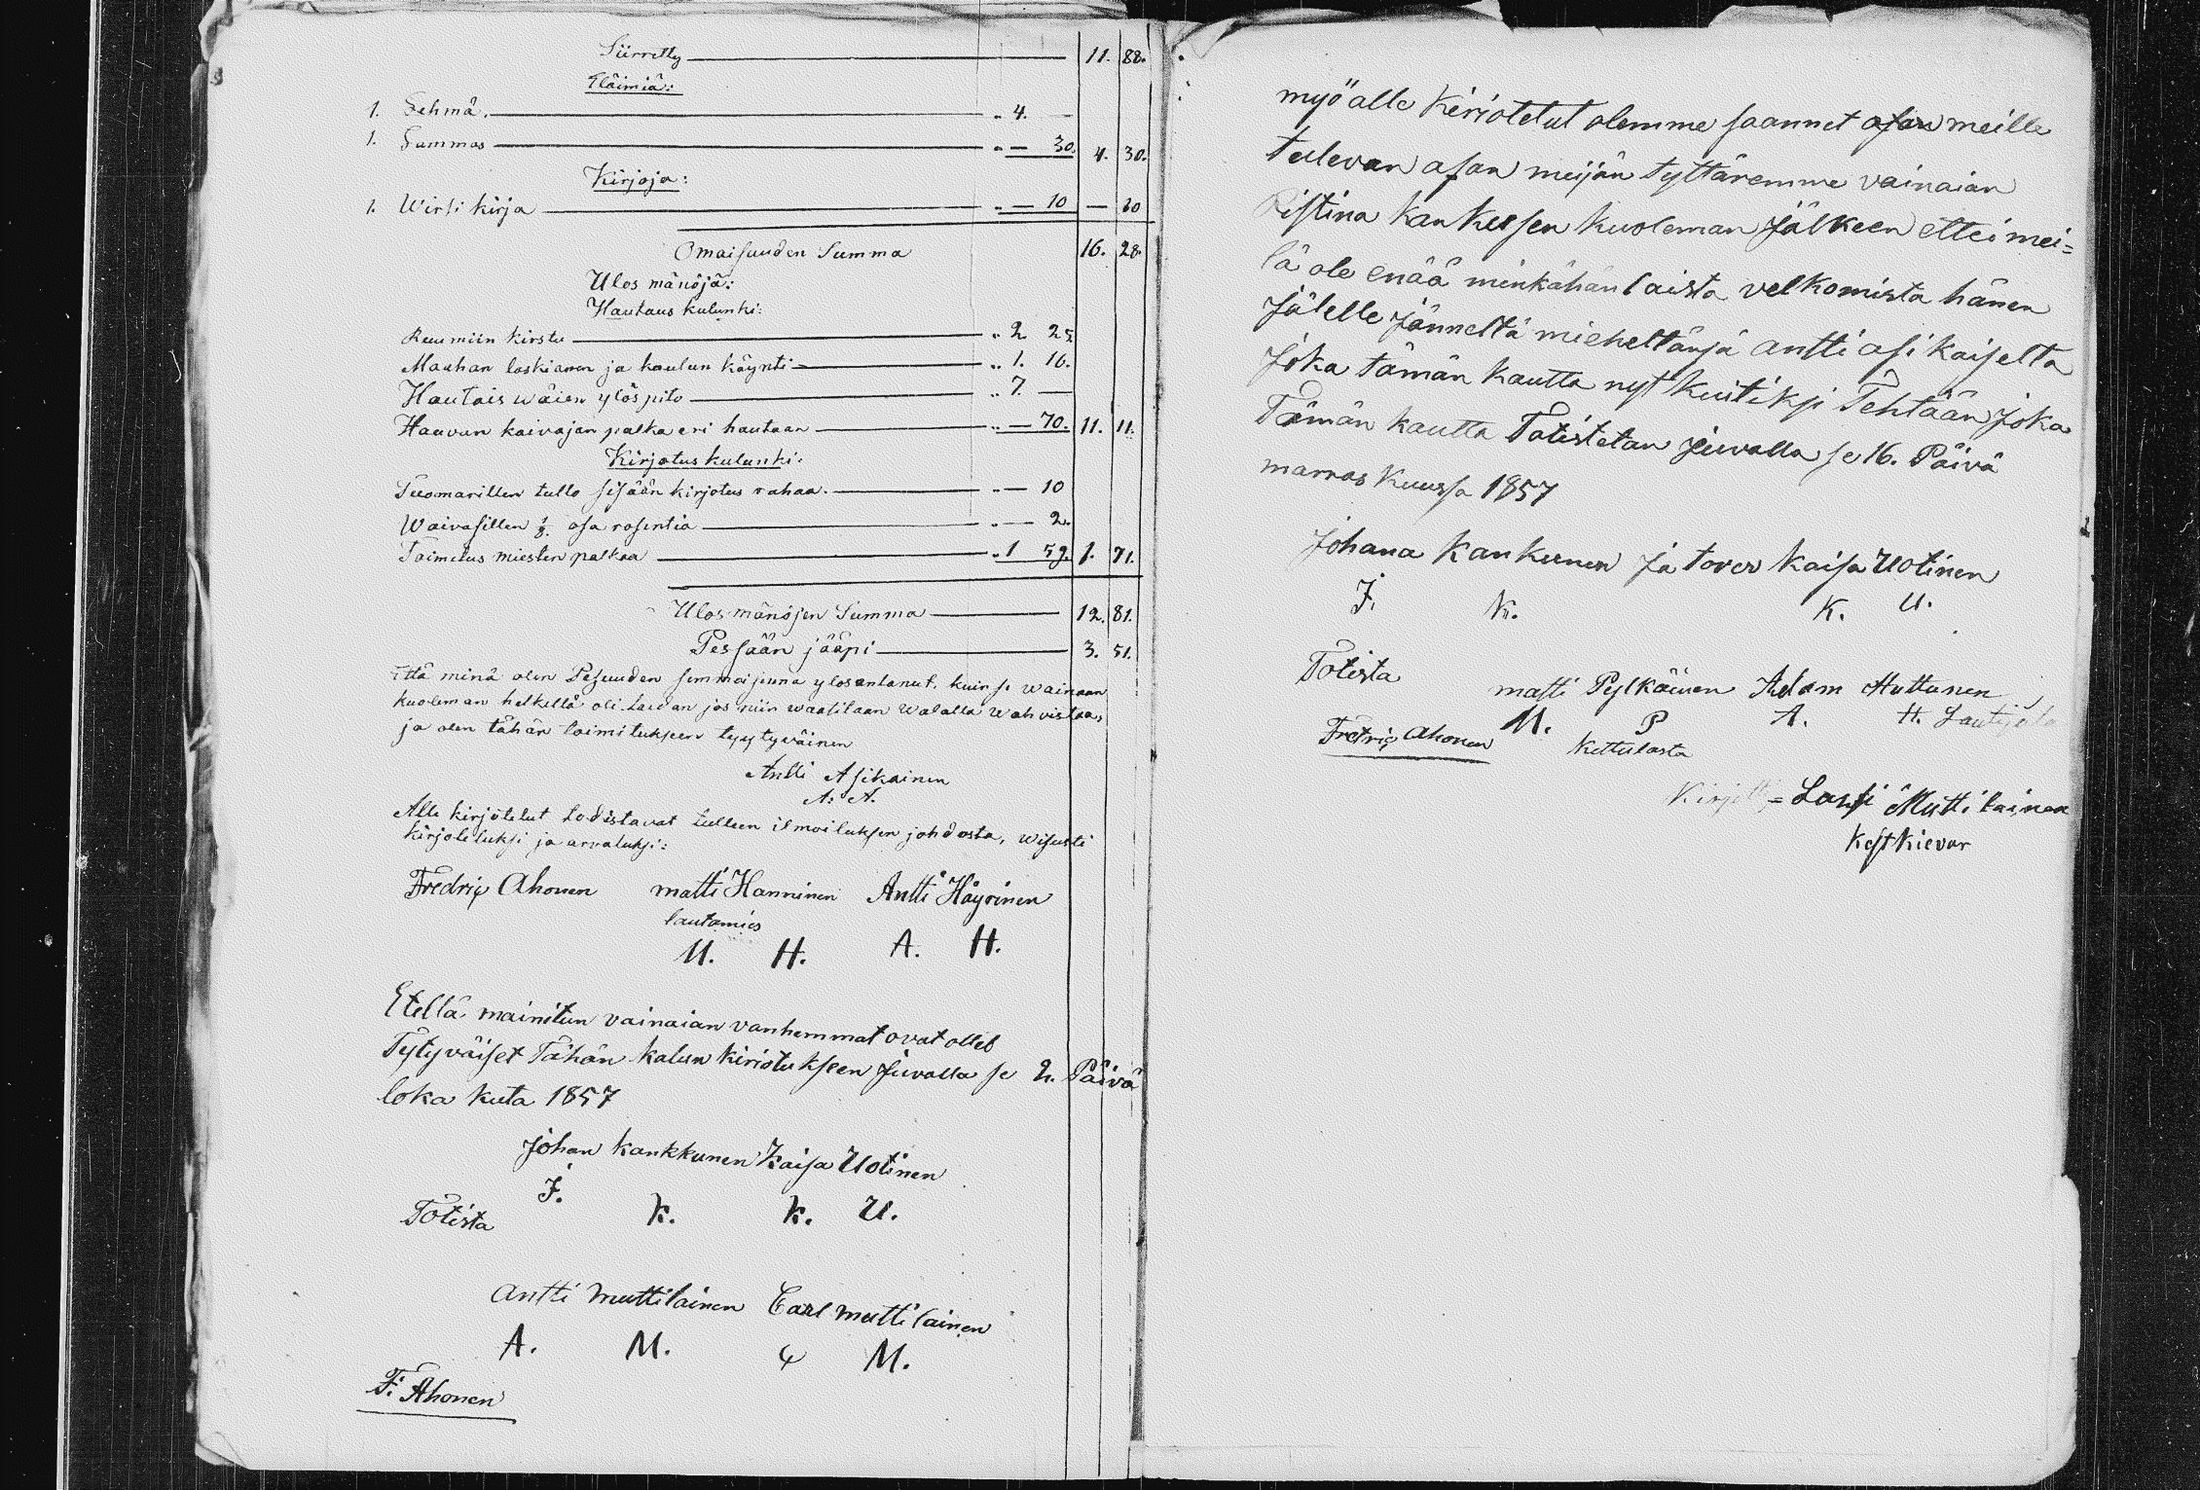 Siirretty 11. 88.
Eläimiä:
1. Lehmä. „ 4. —
1. Lammas „ — 30. 4. 30.
Kirjoja:
1. Wirsi kirja „ — 10 — 10
Omaisuuden Summa 16. 28.
Ulos mänöjä:
Hautaus kulunki:
Ruumiin kirstu „ 2 25
Maahan laskianen ja kaulun käynti „ 1. 16.
Hautais wäien ylöspito „ 7. —
Hauvan kaivajan palka eri hautaan „ — 70. 11. 11.
Kirjotus kulunki:
Tuomarillen tullo sisään kirjotus rahaa. „ — 10
Waivasillen 1/8. osa rosentia „ — 2.
Toimitus miesten palkaa „ 1 59. 1. 71.
Ulos mänöjen Summa 12. 81.
Pessään jääpi 3. 51.
Että minä olen Pesuuden semmoisuna ylosantanut. kuin se wainaan
kuoleman hetkellä oli. Lawan jos niin waatitaan walalla wahvistaa,
ja olen tähän toimitukseen tyytyväinen
Antti Asikainen
A. A.
Alle kirjötetut todistavat tulleen ilmoituksen johdosta, wisusti
kirjoteluksi ja arvatuksi:
Fredrig Ahonen matti Hanninen Antti Häyrinen
lautamies
M. H. A. H.
Etellä mainitun vainaian vanhemmat ovat olleb
Tytyväiset Tähän kalun kiriotukseen Juvalla se 2. Päivä
loka kuta 1857
Johan kankkunen Kaisa Uotinen
J. K. K. U.
Totista
antti muttilainen Carl muttilainen
A. M. C M.
F. Ahonen
myö alle Kiriotetut olemme saannet osan meille
tulevan osan meijän tyttäremme vainaian
Ristina kankusen kuoleman Jälkeen ettei mei=
lä ole enää minkähän laista velkomista hänen
Jälelle Jänneltä mieheltänsä antti asikaiselta
Joka tämän kautta nyt kuitiksi Tehtään Joka
Tämän kautta Totistetan Juvalla se 16. Päivä
marras kuussa 1857
Johana kankunen Ja tover kaisa Uotinen
J. K. K. U.
Totista
matti Pylkäinen Adam Huttunen
M. P A. H.
Fredrig Ahonen kettulasta
Lassi Muttilainen
kestkievar